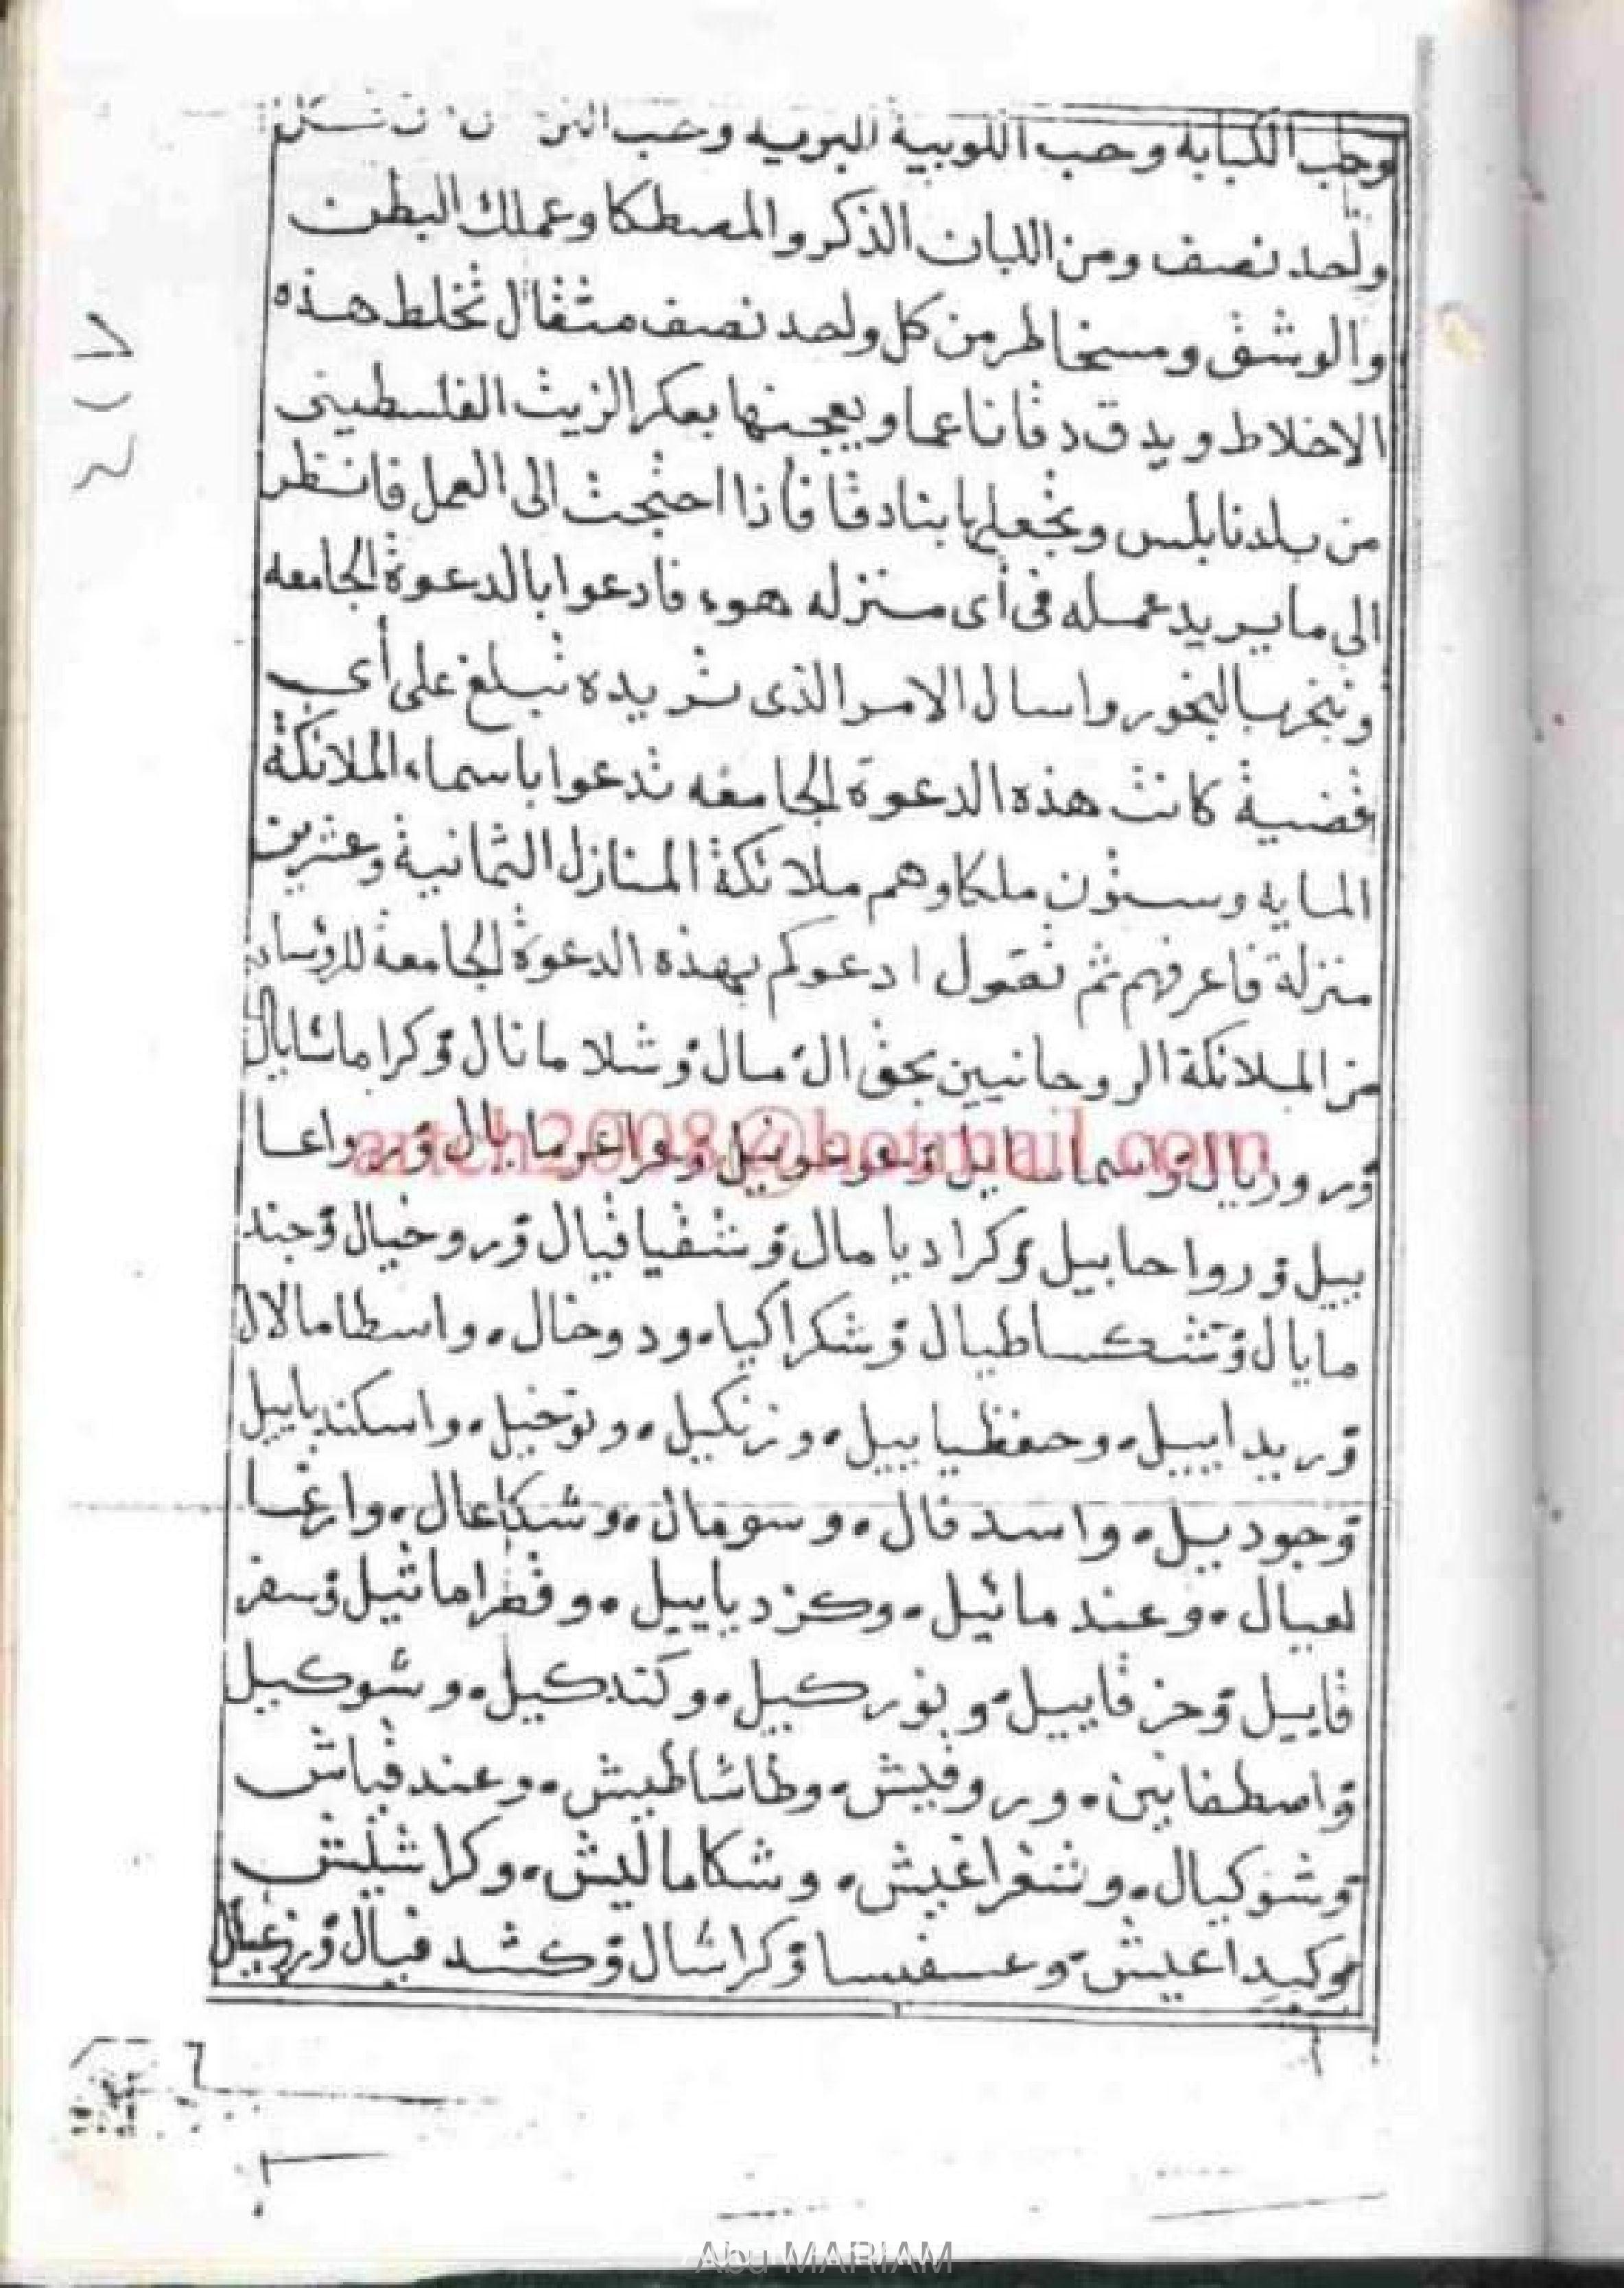 وحب الكبابة وحب اللوبية البريه وحب
واحد نصف ومن اللبان الذكر والمصطكا وعملك البطن
والوشق ومسخاطر من كل واحد نصف مثقال تخلط هذه
الاخلاط ويدق دقا ناعما ويعجنها بعكر الزيت الفلسطيني
من بلد نابلس وتجعلها بنادقا فأذا احتجت الى العمل فانظر
الى ما يريد عمله في أي منزله هوء فادعوا بالدعوة الجامعه
وتبخر بالبخور واسال الامر الذى تريده تبلغ على أي
قضية كانت هذه الدعوة الجامعه تدعوا باسماء الملائكة
المايه وستون ملكا وهم ملائكة المنازل الثمانية وعشرين
منزلة فاعرفهم ثم تقول ادعوكم بهذه الدعوة الجامعة للرؤساء
من الملائكة الروحانيين بحق الؤمال وشلامانال وكراماشايال
وروريال ورواعا
ييل ورواحاييل وكراديامال وشقياقيال وروخيال وجند
مايال وتشكساطيال وشكراكياء ودوخال، واسطامالال
وريداييل، وحفظياييل، وزنكيل، ونوخيل، واسكندياييل
وجوديل، واسدقال، وسومال، وشكاعال، وارغا
لعيال، وعندمائيل، وكزدياييل، وقطراماثيل وسفر
قاييل وحزقاييل ونوركبيل، وكندكيل، وشوكيل
واصطفانين، وروفيش، وطاشاطيش، وعندقباش
وشوكيال، وشغراغيش، وشكاماليش، وكراشليش
وكيداعيش وعسفيسا وكراشال وكشدفيال
٢١٧
artch2008@hotmail.com
Abu MARIAM